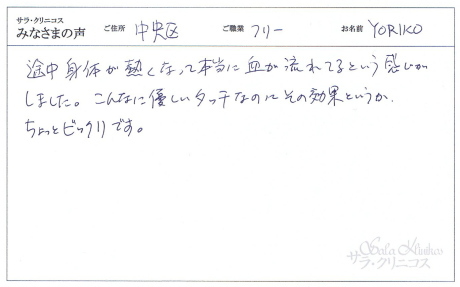 サラ・クリニコス
みなさまの声 ご住所 中央区 ご職業 フリー お名前 YORIKO
途中身体が熱くなって本当に血が流れてるという感じが
しました。こんなに優しいタッチなのにその効果というか、
ちょっとビックリです。
Sala Klinikos
サラ・クリニコス